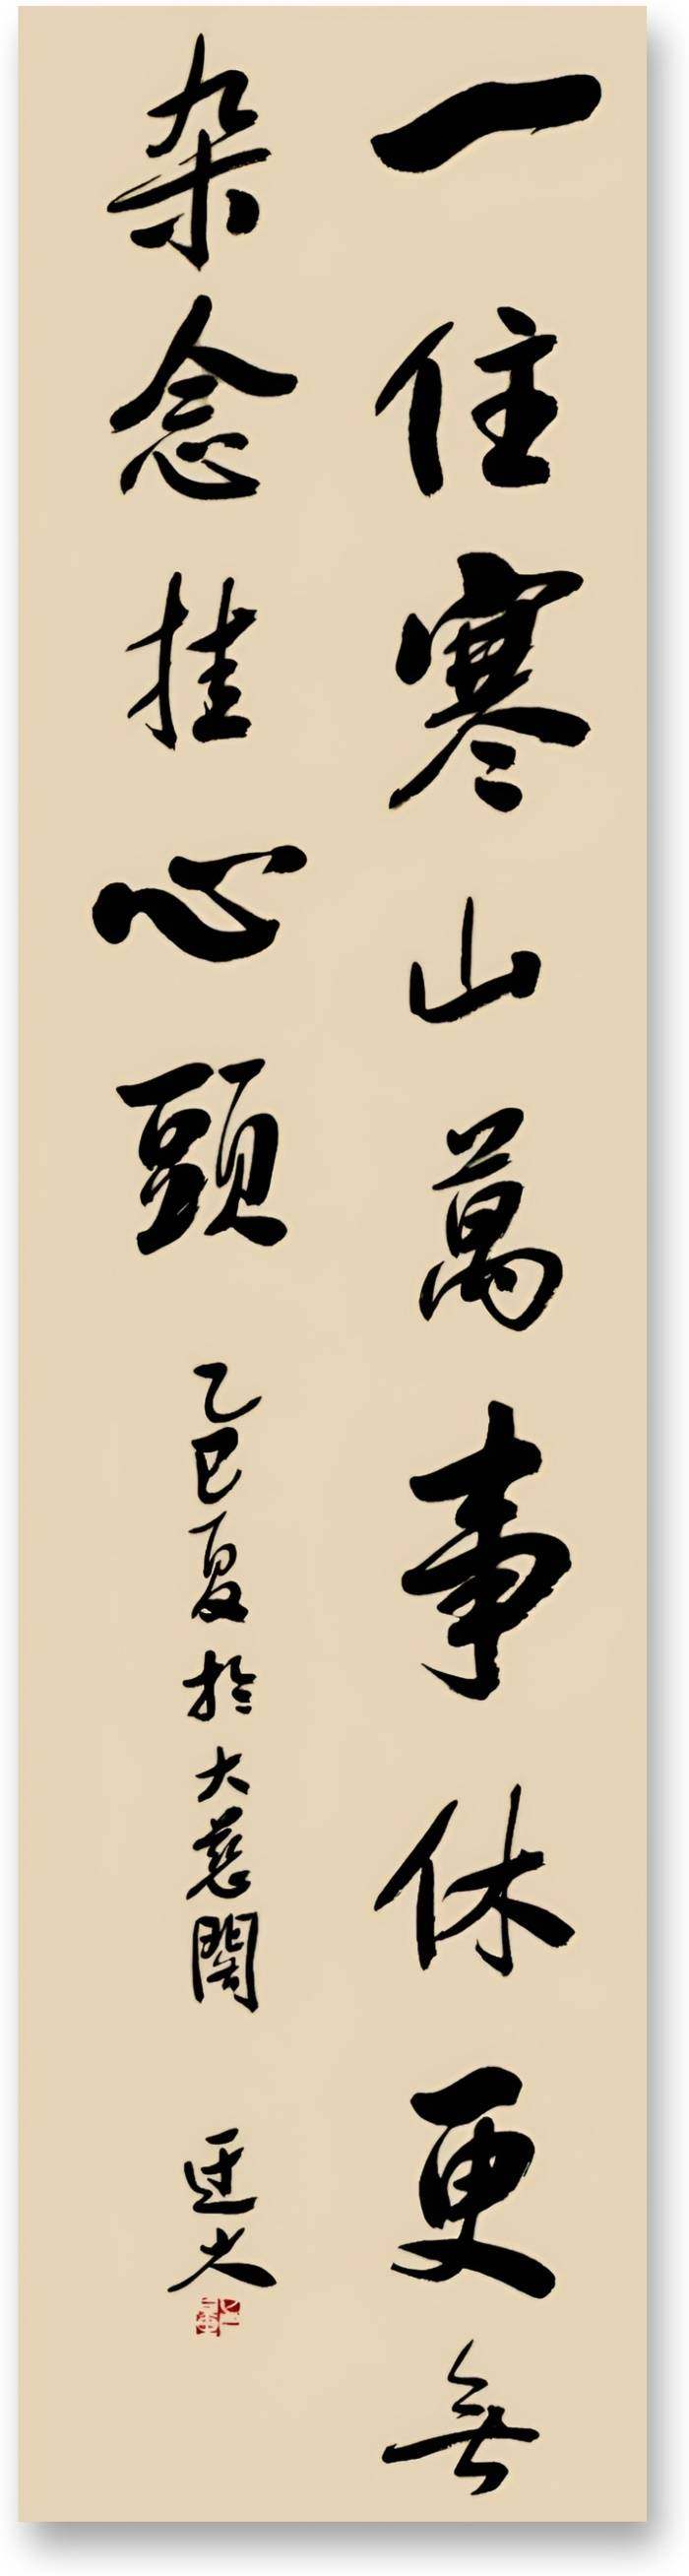 一住寒山萬事休更無
杂念挂心頭
乙巳夏於大慈閣